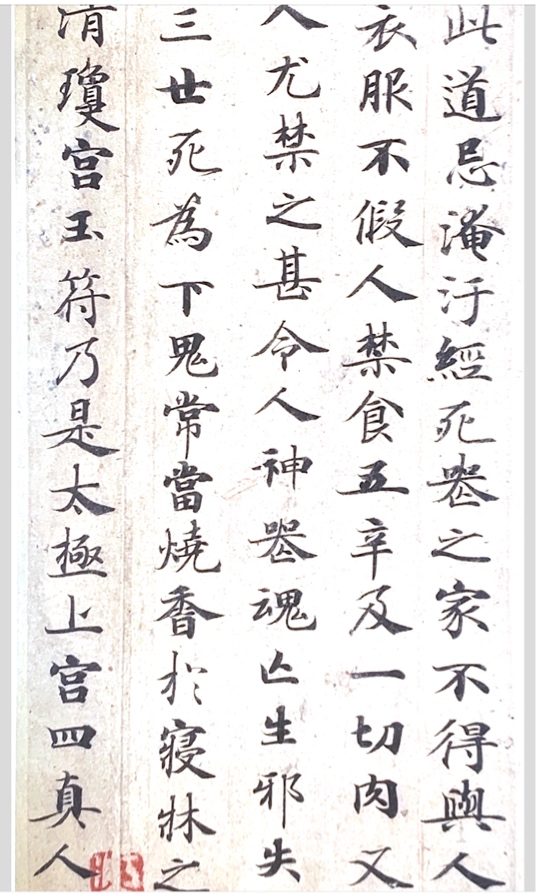 此道忌淹汙經死喪之家不得與人
衣服不假人禁食五辛及一切肉又
人尤禁之甚令人神喪魂亡生邪失
三世死為下鬼常當燒香於寢牀之
清瓊宫玉符乃是太極上宫四真人